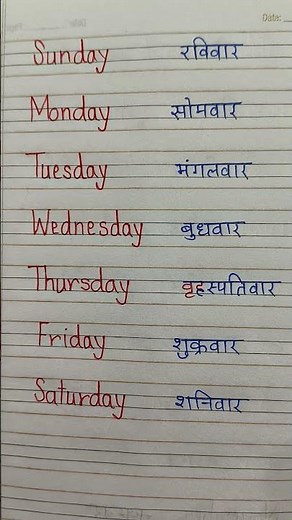 Date:
Sunday रविवार
Monday सोमवार
Tuesday मंगलवार
Wednesday बुधवार
Thursday वृहस्पतिवार
Friday शुक्रवार
Saturday शनिवार